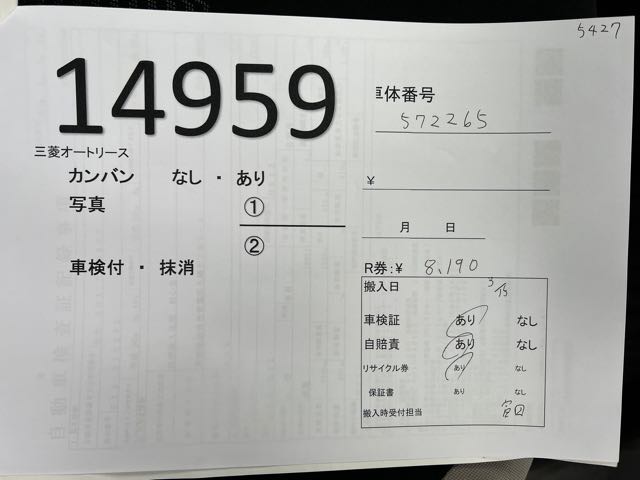 5427
14959
車体番号
572265
三菱オートリース
カンバン なし ・ あり
¥
写真 ①
②
月 日
車検付 ・ 抹消
R券:¥ 8,190
搬入日 3/15
車検証 あり なし
自賠責 あり なし
リサイクル券 あり なし
保証書 あり なし
搬入時受付担当